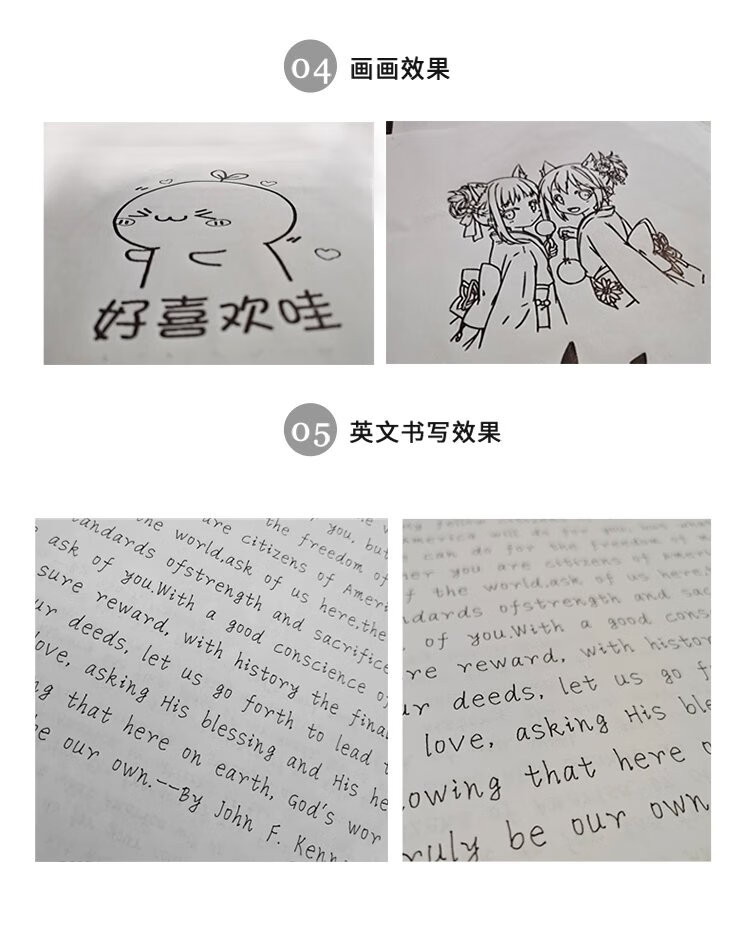 04 画画效果
好喜欢哇
05 英文书写效果
you, but
the freedom of
are citizens of Ameri
the world,ask of us here,the
andards ofstrength and sacrifice
ask of you.With a good conscience
sure reward, with history the final
ur deeds, let us go forth to lead
love, asking His blessing and His he
ng that here on earth, God's wor
be our own.--By John F. Kenn
America will do for you, but what
can do for the freedom of
her you are citizens of Ameri
f the world,ask of us here,
ndards ofstrength and sac
of you.With a good cons
re reward, with histor
ur deeds, let us go f
love, asking His ble
owing that here o
ruly be our own